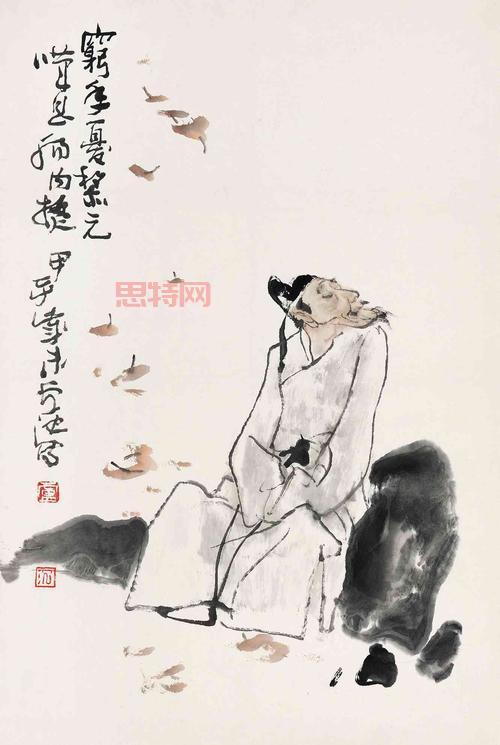 窮年憂黎元
嘆息腸内熱
甲子歲末卢沉寫
思特网